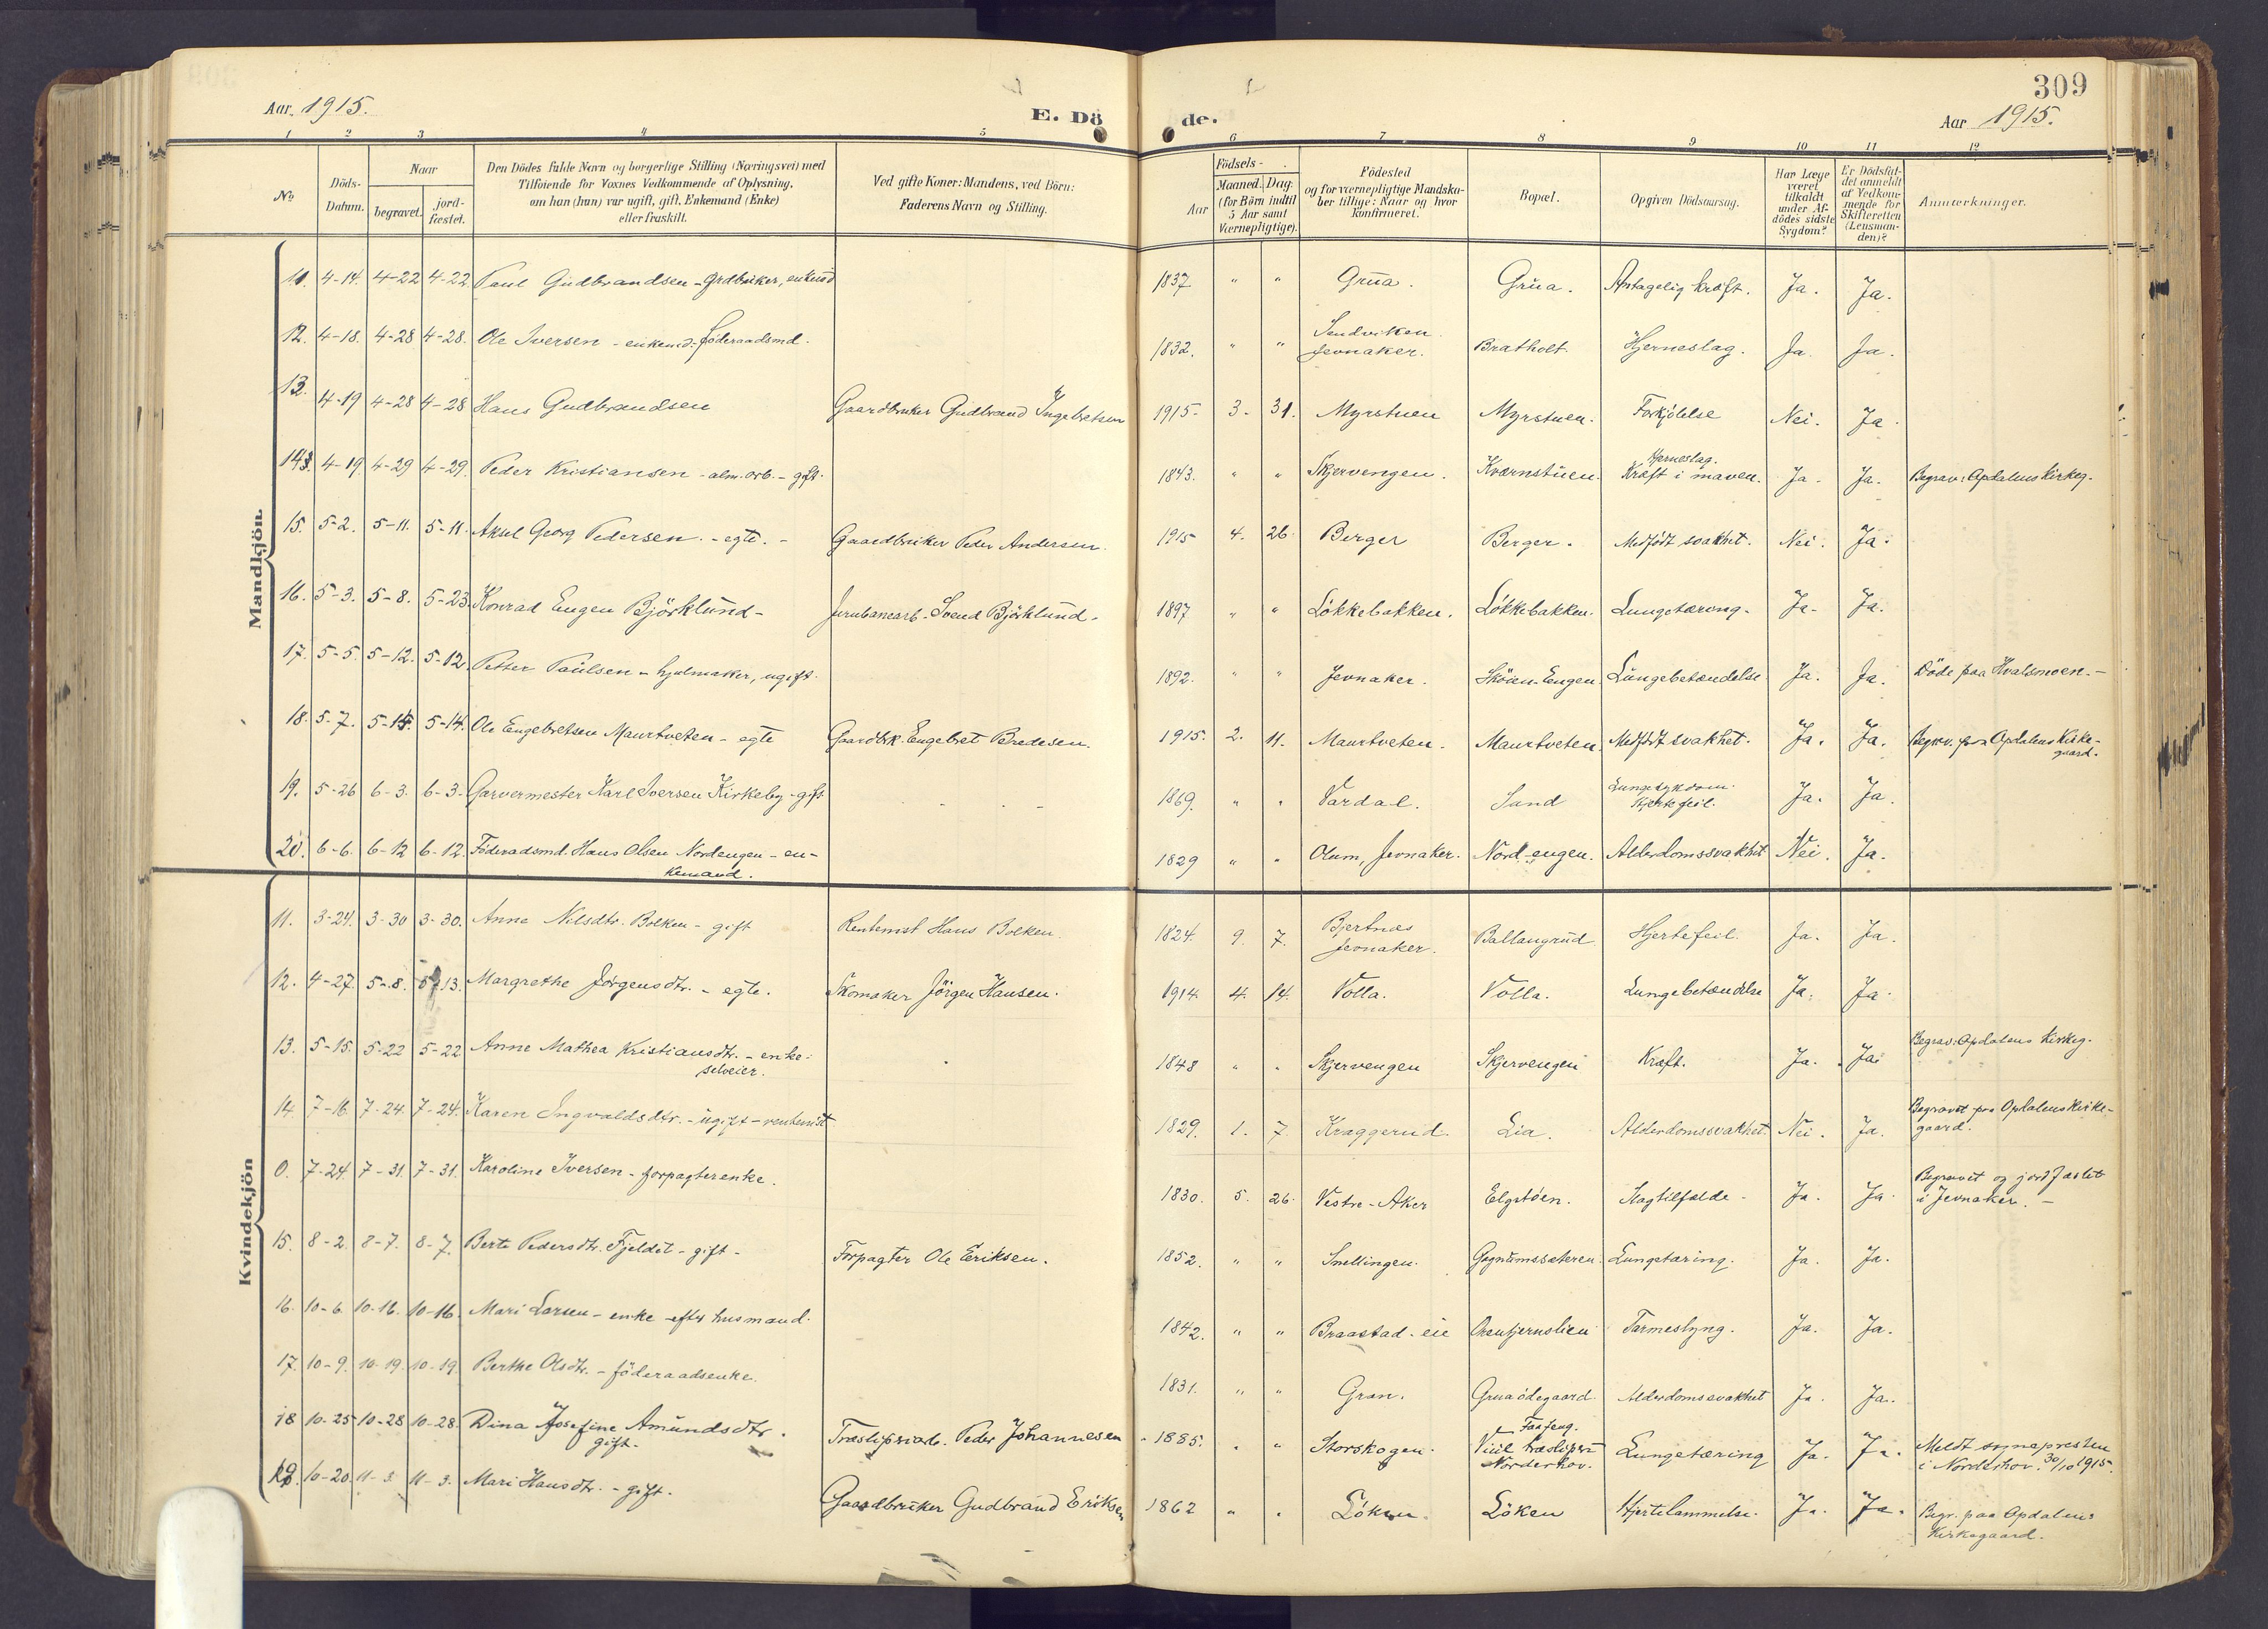 309
Aar 1915.
E. Dö
de.
Aar 1915.
1 2 3 4 5 6 7 8 9 10 11 12
No
Döds-Datum.
Naar
begravet.
jord-fæstet.
Den Dödes fulde Navn og borgerlige Stilling (Næringsvei) med
Tilföiende for Voxnes Vedkommende af Oplysning,
om han (hun) var ugift, gift, Enkemand (Enke)
eller fraskilt.
Ved gifte Koner: Mandens, ved Börn:
Faderens Navn og Stilling.
Födsels-
Aar
Maaned. Dag.
(for Börn indtil
5 Aar samt
Værnepligtige).
Födested
og for værnepligtige Mandska-
ber tillige: Naar og hvor
Konfirmeret.
Bopæl.
Opgiven Dödsaarsag.
Har Læge
været
tilkaldt
under Af-
dödes sidste
Sygdom?
Er Dödsfal-
det anmeldt
af Vedkom-
mende for
Skifteretten
(Lensman-
den)?
Anmærkninger.
Mandkjön
11. 4-14. 4-22 4-22 Paul Gudbrandsen - grdbruker, enkemd 1837 " " Grua. Grua. Antagelig kræft. Ja. Ja.
12. 4-18. 4-28 4-28. Ole Iversen - enkemd - föderaadsmd. 1832. " " Sandviken Jevnaker. Bratholt. Hjerneslag. Ja. Ja.
13. 4-19 4-28 4-28 Hans Gudbrandsen Gaardbruker Gudbrand Ingebretsen 1915- 3. 31. Myrstuen Myrstuen. Forkjölelse Nei. Ja.
14. 4-19. 4-29 4-29. Peder Kristiansen - alm. arb. - gift. 1843. " " Skjervengen. Kværnstuen. Hjerneslag. Kræft i maven. Ja. Ja. Begrav: Opdalens Kirkeg.
15. 5-2. 5-11. 5-11. Aksel Georg Pedersen. - egte. - Gaardbruker Peder Andersen. 1915 4. 26. Berger Berger. Medfödt svakhet. Nei. Ja.
16. 5-3. 5-8. 5-23. Konrad Eugen Björklund - Jernbanearb. Svend Björklund. 1897 " " Lökkebakken. Lökkebakken. Lungetæring. Ja. Ja.
17. 5-5. 5-12. 5-12. Petter Paulsen - hjulmaker, ugift. 1892. " " Jevnaker. Sköien-Eugen. Lungebetændelse Ja. Ja. Döde paa Hvalsmoen. -
18. 5-7. 5-15. 5-14. Ole Engebretsen Maurtveten - egte Gaardbrk. Engebret Bredesen. 1915. 2. 11. Maurtveten. Maurtveten. Medfödt svakhet. Ja. Ja. Begrav. paa Opdalens Kirke-
gaard.
19. 5-26 6-3. 6-3. Garvermester Karl Iversen Kirkeby - gift 1869. " " Vardal. Sand Lungesykdom. Hjertefeil. Ja. Ja.
20. 6-6. 6-12 6-12. Föderadsmd. Hans Olsen Nordengen - en-
kemand. 1829 " " Olum, Jevnaker. Nord-engen. Alderdomssvakhet Nei. Ja.
Kvindekjön
11. 3-24. 3-30 3-30. Anne Nilsdtr. Bolken - gift Rentenist Hans Bolken. 1824. 9. 7. Bjertnæs Jevnaker. Ballangrud Hjertefeil. Ja. Ja.
12. 4-27. 5-8. 13. Margrethe Jörgensdtr. - egte. Skomaker Jörgen Hansen. 1914. 4. 14. Volla. Volla. Lungebetændelse Ja. Ja.
13. 5-15. 5-22 5-22 Anne Mathea Kristiansdtr. - enke.
selveier. 1848 " " Skjervengen Skjervengen Kræft. Ja. Ja. Begrav: Opdalens Kirkeg.
14. 7-16. 7-24. 7-24. Karen Ingvaldsdtr. - ugift - rentenist 1829. 1. 7. Kraggerud. Lia. Alderdomssvakhet. Nei. Ja. Begravet paa Opdalens Kirke-
gaard.
0. 7-24. 7-31. 7-31. Karoline Iversen - forpagterenke. 1830. 5. 26. Vestre-Aker Elgstöen. Slagtilfælde. Ja. Ja. Begravet og jordfæstet
i Jevnaker. -
15. 8-2. 8-7. 8-7. Berte Pedersdtr. Fjeldet - gift - Forpagter Ole Eriksen. 1852. " " Snellingen. Gagnumssæteren. Lungetæring. Ja. Ja.
16. 10-6. 10-16. 10-16. Mari Larsen - enke efter husmand. 1842. " " Braastad-eie Tarmeslyng. Ja. Ja.
17. 10-9. 10-19. 10-19. Berthe Olsdtr. - föderaadsenke. 1831. " " Gran. Gruaödegaard. Alderdomssvakhet Ja. Ja.
18 10-25 10-28 10-28. Dina Josefine Amundsdtr.
gift. Træsliperiarb. Peder Johannesen 1885. " " Storskogen. Viul træsliperi
Norderhov. Lungetæring Ja. Ja. Meldt sognepresten
i Norderhov. 30/10 1915.
19. 10-20. 11-3. 11-3. Mari Hansdtr. - gift. Gaardbruker Gudbrand Eriksen 1862 " " Löken. Löken Hjertelammelse. Ja. Ja. Begr. paa Opdalens
Kirkegaard.